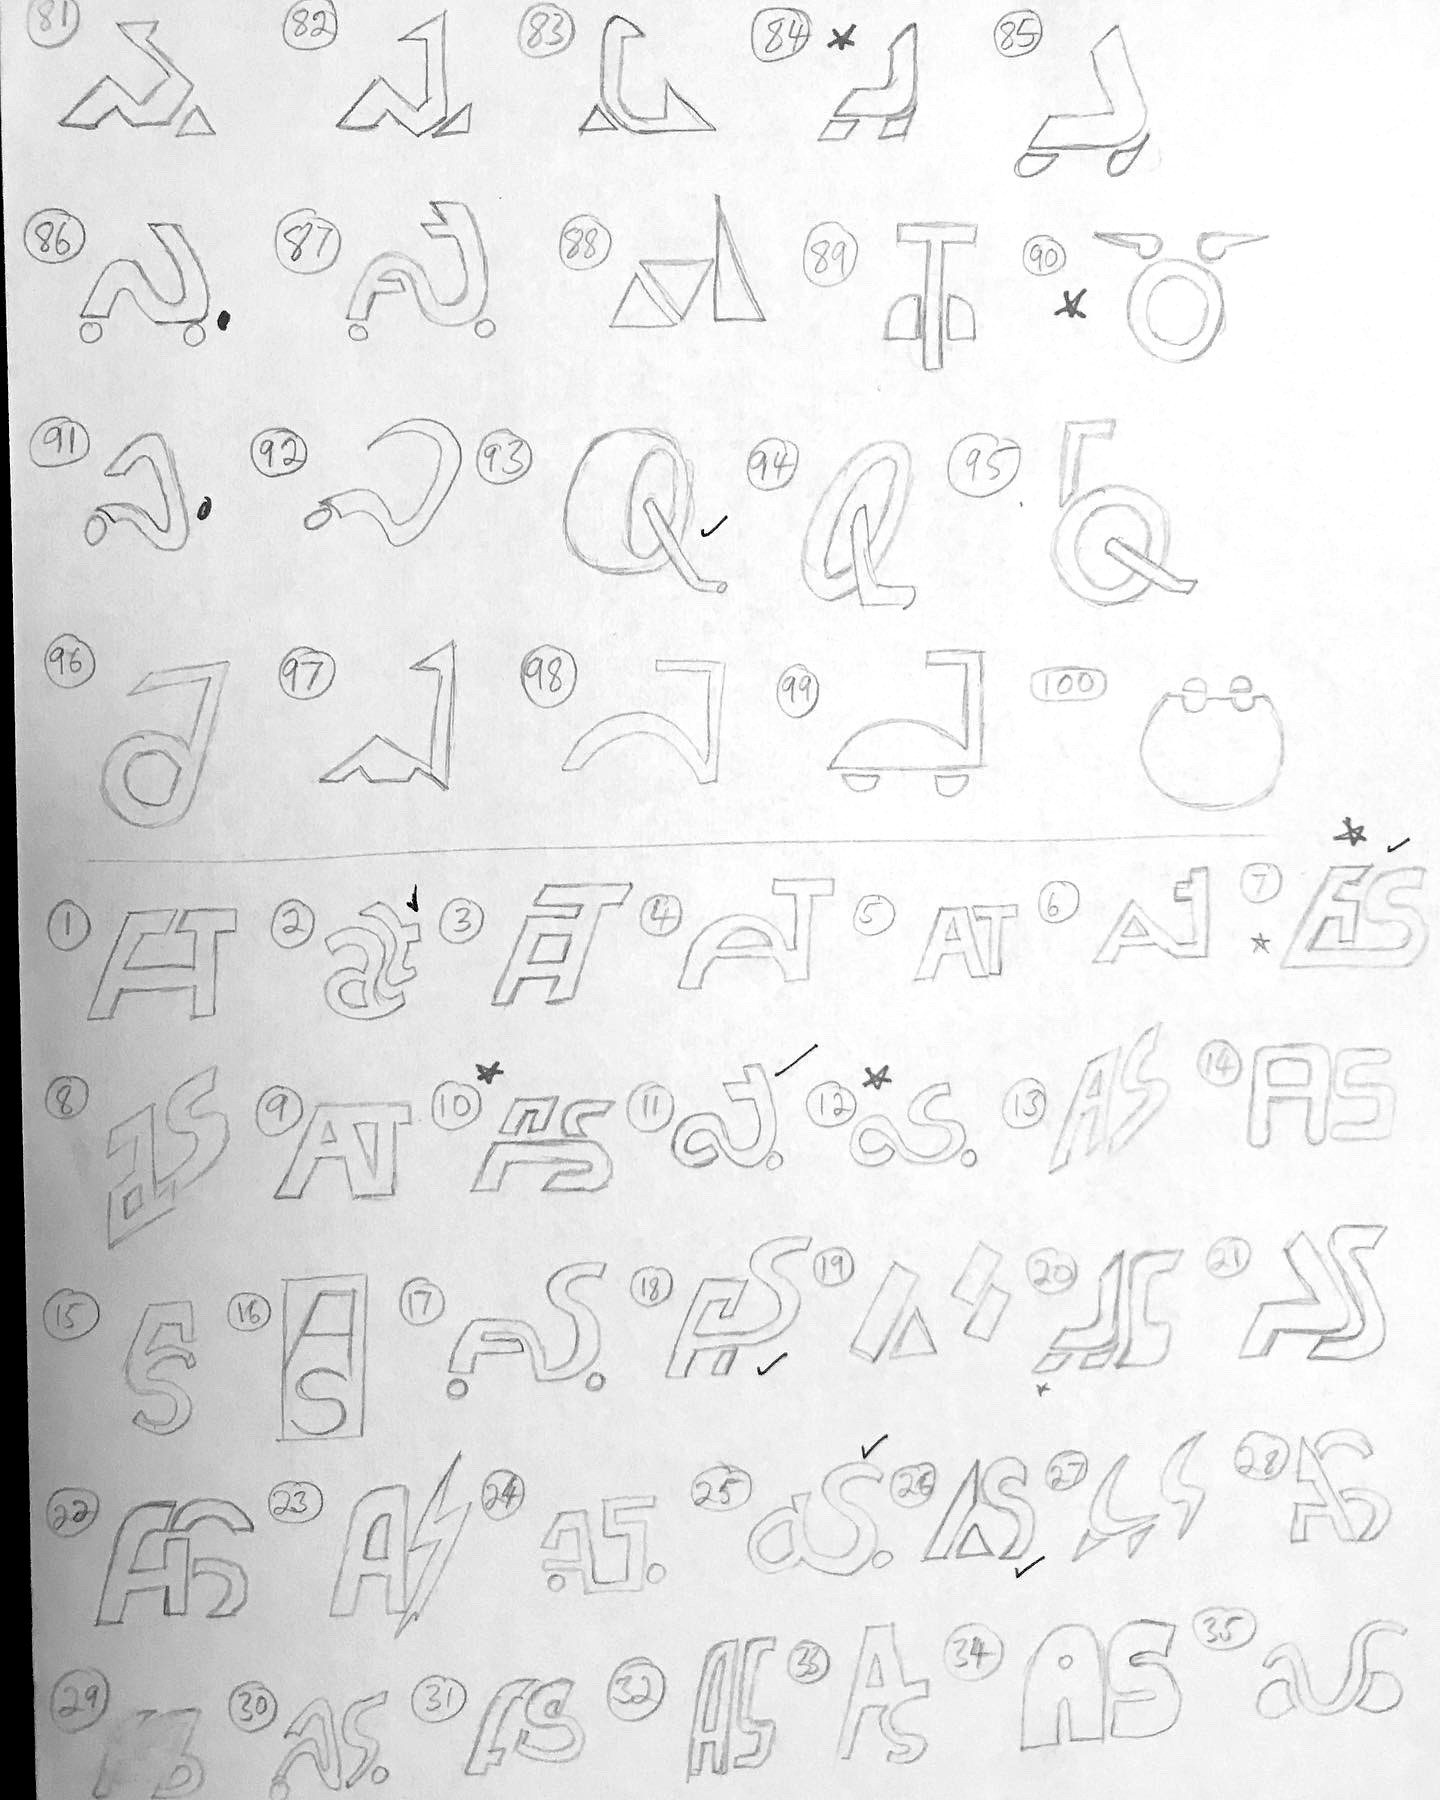 81 82 83 84 85
86 87 88 89 T 90
91 92 93 Q 94 Q 95 Q
96 97 98 99 100
1 AT 2 at 3 AT 4 AT 5 AT 6 AT 7 AS
8 AS 9 AT 10 AS 11 12 as 13 AS 14 AS
15 AS 16 AS 17 AS 18 AS 19 20 21 AS
22 AS 23 AS 24 as 25 as 26 AS 27 28 AS
29 30 AS 31 AS 32 AS 33 AS 34 AS 35 as